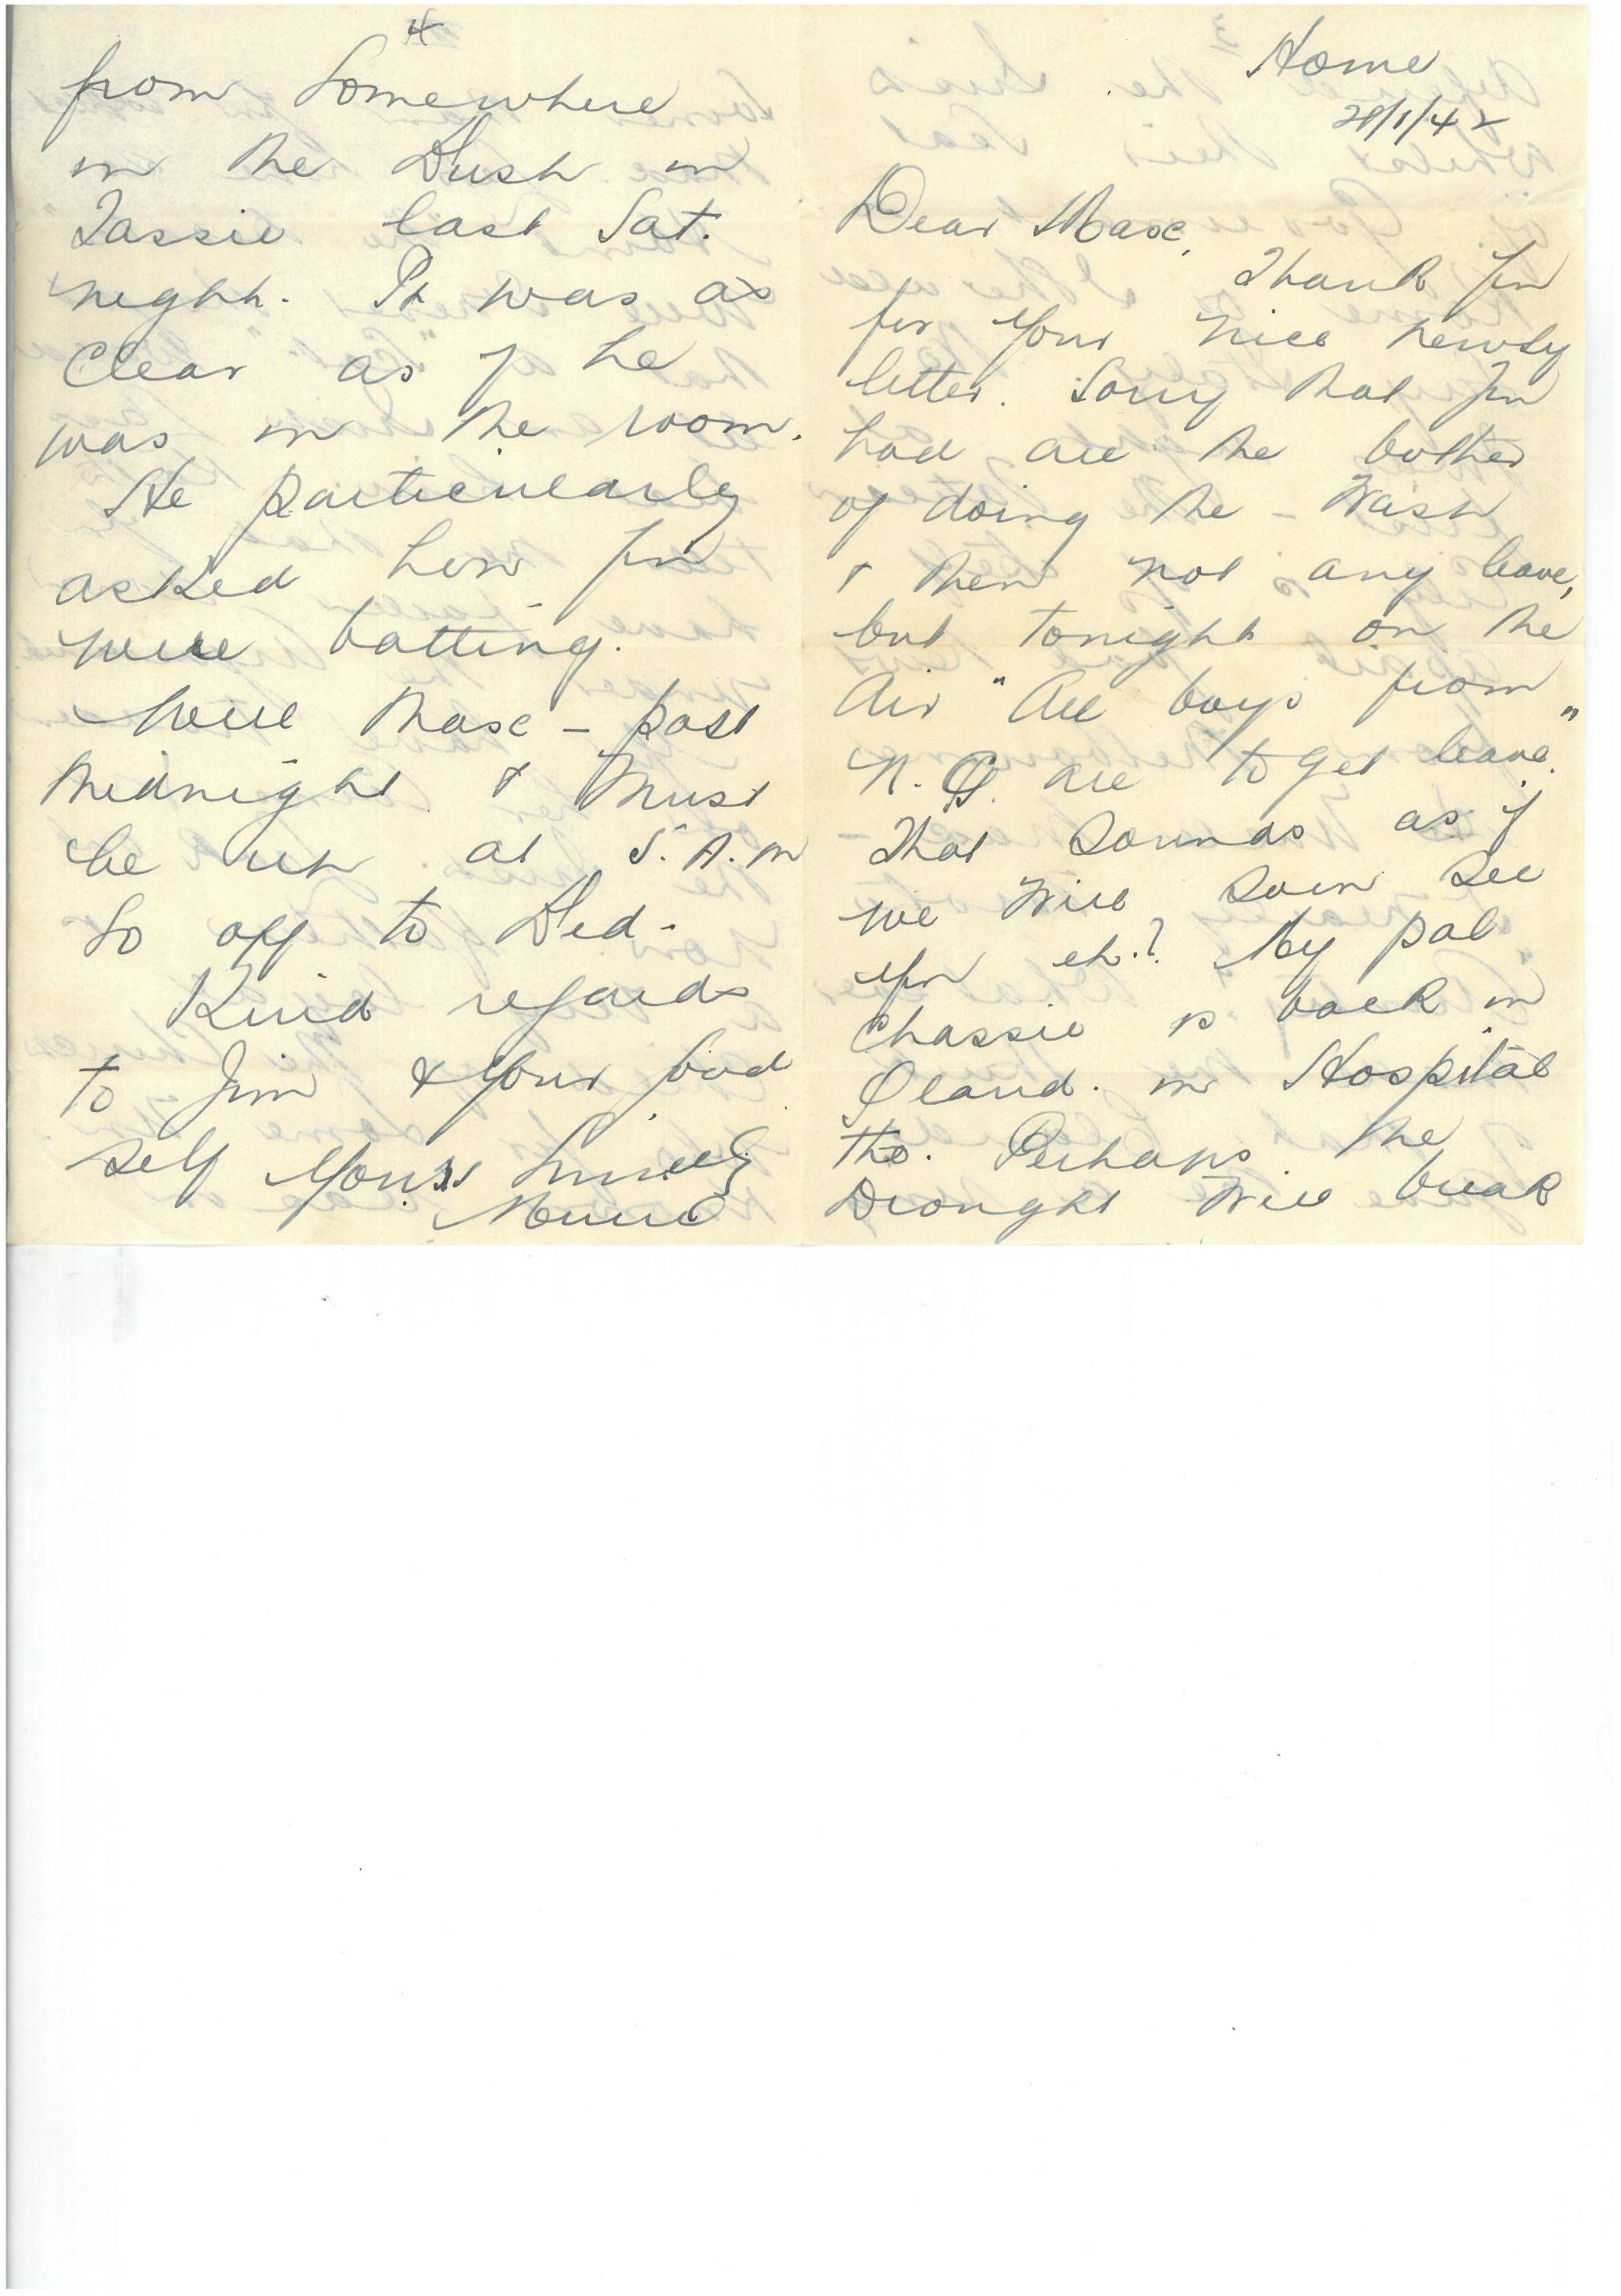 Home
28/1/42
Dear Mase,
Thank you
for your nice newsy
letter. Sorry that you
had all the bother
of doing the - Wash
& then not any leave,
but tonight on the
Air "All boys from
N.G. are to get leave."
That sounds as if
we will soon see
you eh.? My pal
Chassie is back in
Qland. in Hospital
tho. Perhaps the
Drought will break
4
from Somewhere
in the Bush in
Tassie last Sat.
night. It was as
Clear as if he
was in the room.
He particularly
asked how you
were batting.
Well Mase - past
Midnight & Must
be up at 5. A.M
So off to Bed.
Kind regards
to Jim & your good
self Yours Sincerely